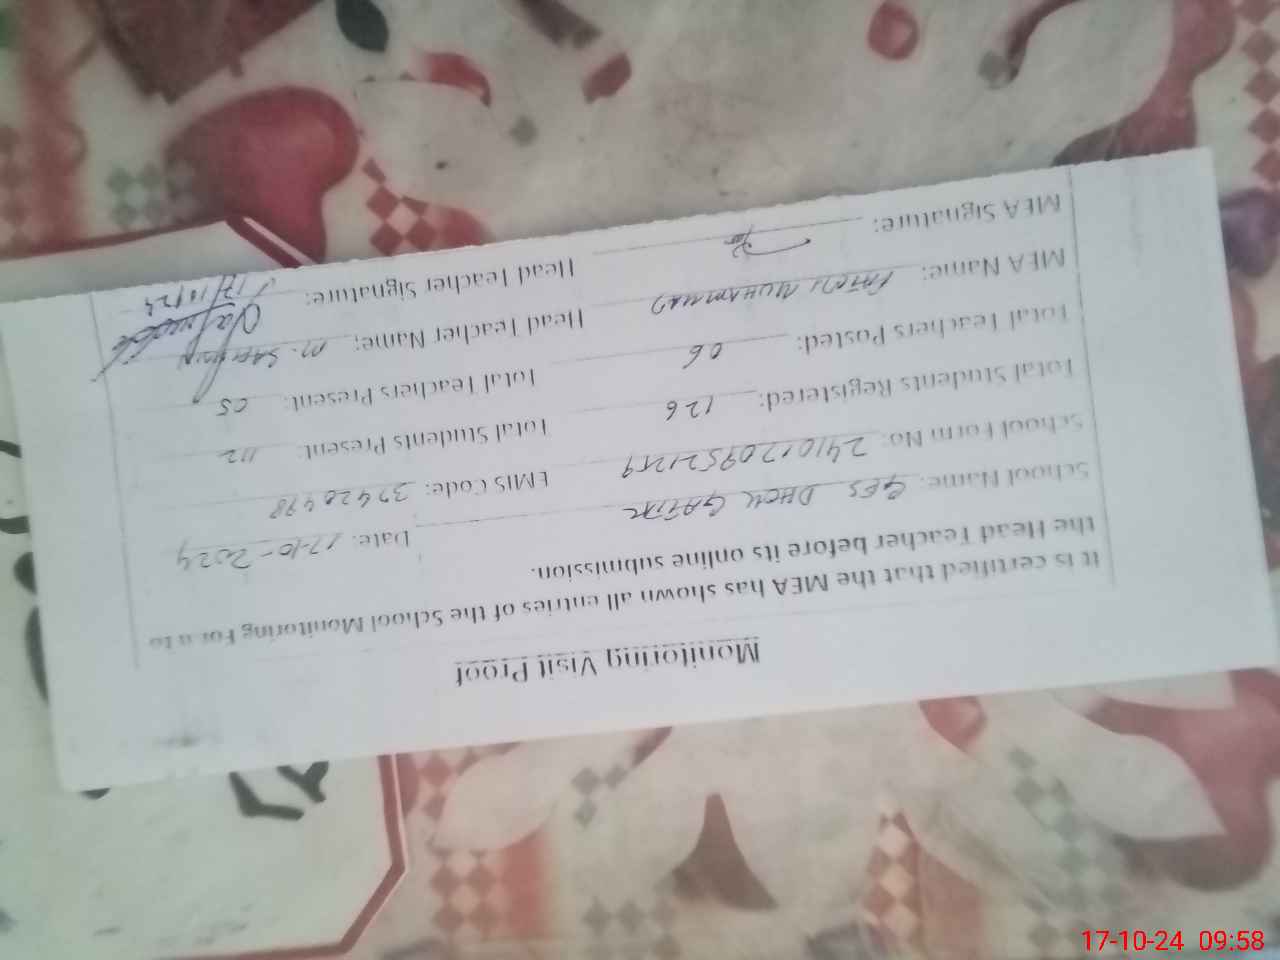 Monitoring Visit Proof
It is certified that the MEA has shown all entries of the School Monitoring For n to
the Head Teacher before its online submission.
Date: 17-10-2024
School Name: GES DHOK
School Form No: EMIS Code: 37420498
Total Students Registered: 126 Total Students Present: 112
Total Teachers Posted: 06 Total Teachers Present: 05
MEA Name: MUHAMMAD Head Teacher Name: M.
MEA Signature: Head Teacher Signature:
17/10/24
17-10-24 09:58